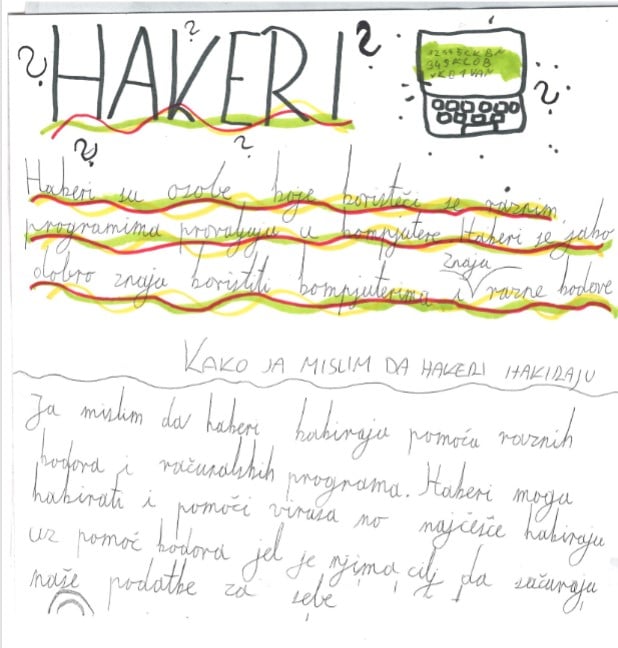 HAKERI
1234SCKBN
349KLOB
VKE1VAN
Hakeri su osobe koje koristeći se raznim
programima provaljuju u kompjutere Hakeri se jako
dobro znaju koristiti kompjuterima i znaju razne kodove
KAKO JA MISLIM DA HAKERI HAKIRAJU
Ja mislim da hakeri hakiraju pomoću raznih
kodova i računalskih programa. Hakeri mogu
hakirati i pomoći virusa no najčešće hakiraju
uz pomoć kodova jel je njima cilj da sačuvaju
naše podatke za sebe